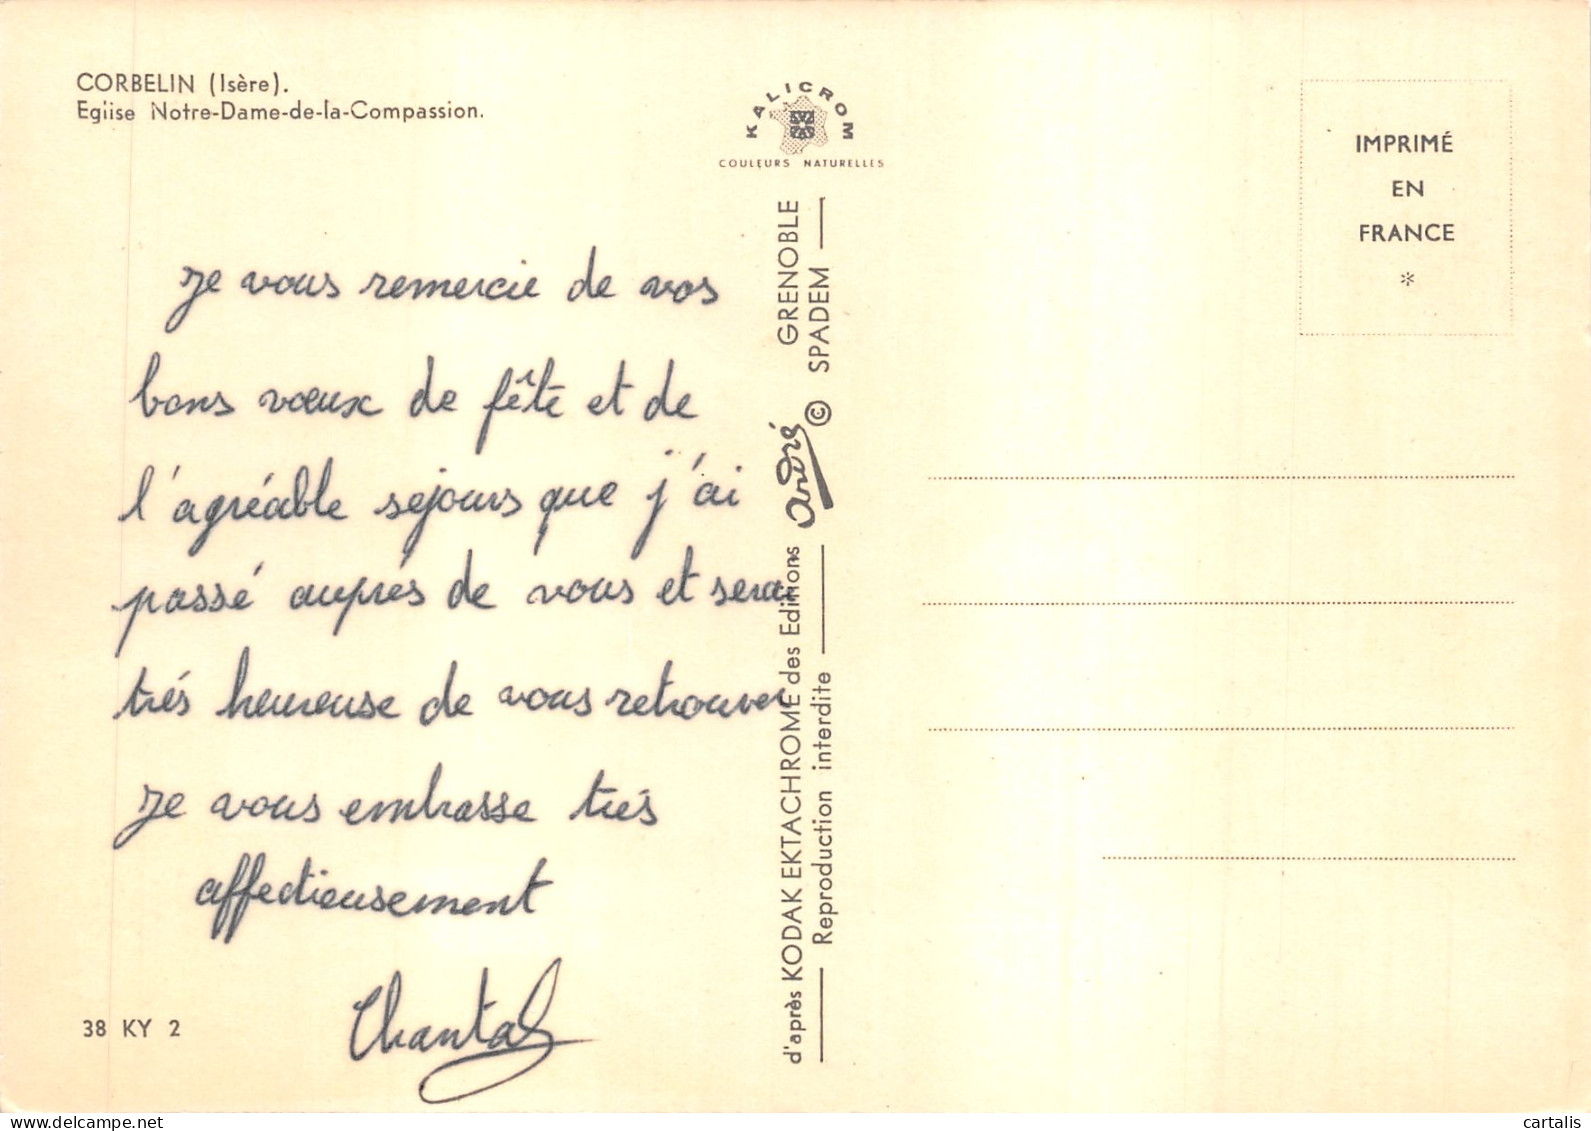 CORBELIN (Isère).
Eglise Notre-Dame-de-la-Compassion.
KALICROM
COULEURS NATURELLES
IMPRIMÉ
EN
FRANCE
*
Je vous remercie de vos
bons vœux de fête et de
l'agréable sejours que j'ai
passé auprés de vous et serai
trés heureuse de vous retrouver
Je vous embrasse trés
affectieusement
Chantal
38 KY 2
d'après KODAK EKTACHROME des Editions André GRENOBLE
Reproduction interdite © SPADEM
www.delcampe.net
cartalis